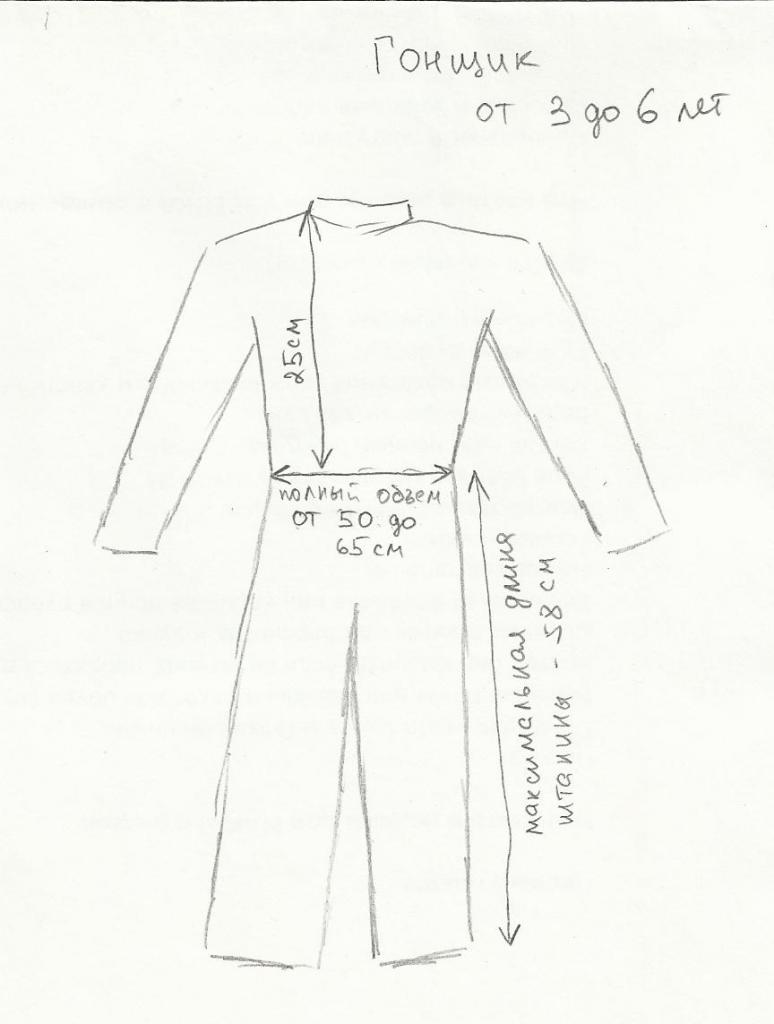 Гонщик
от 3 до 6 лет
25см
полный объем
от 50 до
65см
максимальная длина
штанины - 58 см